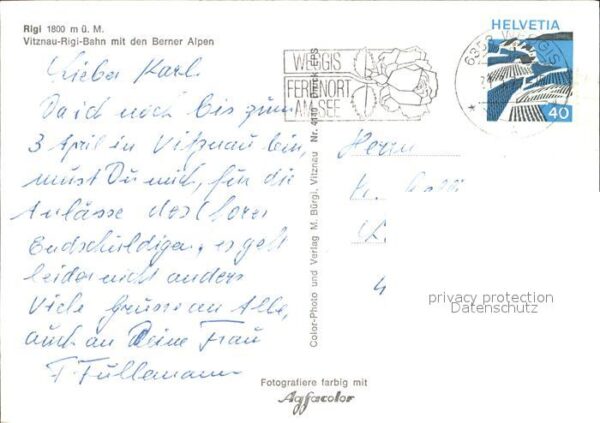 Rigi 1800 m ü. M.
Vitznau-Rigi-Bahn mit den Berner Alpen
Lieber Karl
Da ich noch bis zum
3 April in Vitznau bin,
musst Du mich, für die
Anlässe des Chores
Endschuldigen, es geht
leider nicht anders
Viele Grüsse an Alle,
auch an Deine Frau
F. Füllemann
Color-Photo und Verlag M. Bürgi, Vitznau Nr. 4140
WEGGIS
FERIENORT
AM SEE
6353 WEGGIS
HELVETIA
40
Herrn
K.
4
privacy protection
Datenschutz
Fotografiere farbig mit
Agfacolor